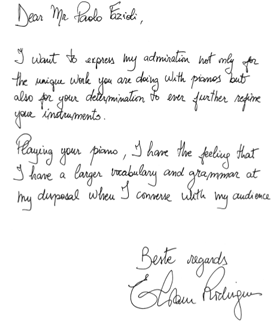 Dear Mr. Paolo Fazioli,
I want to express my admiration not only for
the unique work you are doing with pianos but
also for your determination to ever further refine
your instruments.
Playing your piano, I have the feeling that
I have a larger vocabulary and grammar at
my disposal when I converse with my audience
Beste regards